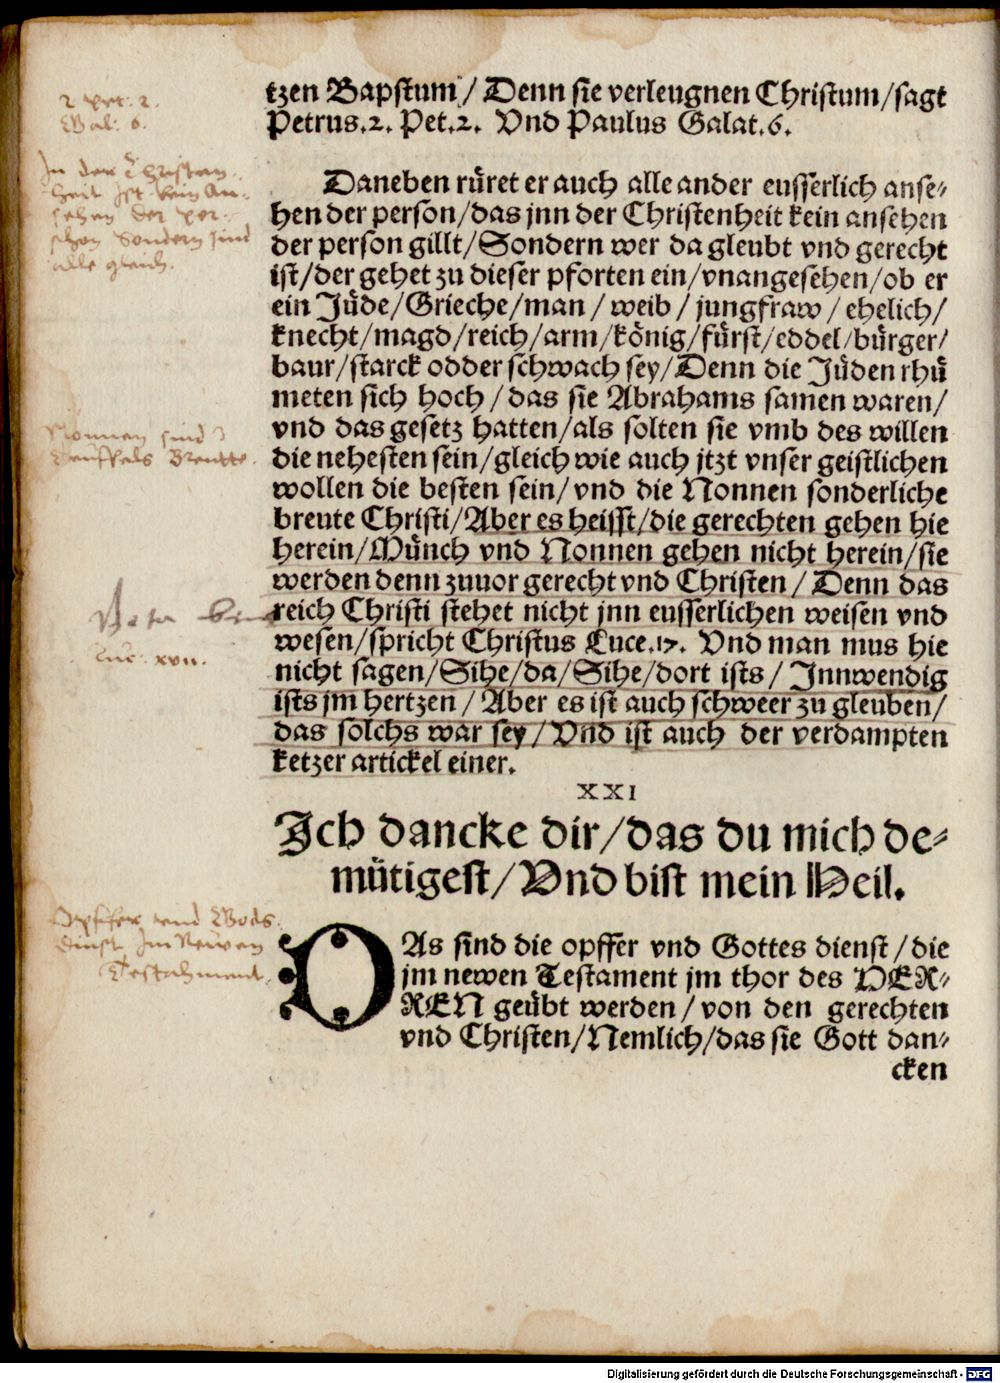 tzen Bapstum/ Denn sie verleugnen Christum/sagt
Petrus.2. Pet.2. Vnd Paulus Galat.6.
2 Pet. 2.
Gal: 6.
Daneben rüret er auch alle ander eusserlich anse-
hen der person/das jnn der Christenheit kein ansehen
der person gillt/Sondern wer da gleubt vnd gerecht
ist/der gehet zu dieser pforten ein/vnangesehen/ob er
ein Jüde/Grieche/man/ weib/ jungfraw/ ehelich/
knecht/magd/reich/arm/könig/fürst/eddel/bürger/
baur/starck odder schwach sey/Denn die Jüden rhü
meten sich hoch/ das sie Abrahams samen waren/
vnd das gesetz hatten/als solten sie vmb des willen
die nehesten sein/gleich wie auch jtzt vnser geistlichen
wollen die besten sein/ vnd die Nonnen sonderliche
breute Christi/Aber es heisst/die gerechten gehen hie
herein/Münch vnd Nonnen gehen nicht herein/sie
werden denn zuuor gerecht vnd Christen/ Denn das
reich Christi stehet nicht jnn eusserlichen weisen vnd
wesen/spricht Christus Luce.17. Vnd man mus hie
nicht sagen/Sihe/da/Sihe/dort ists/ Jnnwendig
ists jm hertzen/ Aber es ist auch schweer zu gleuben/
das solchs war sey/Vnd ist auch der verdampten
ketzer artickel einer.
In der Christen-
heit ist kein An-
sehen der per-
schon Sondern sind
alle gleich.
Nonnen sind
Teuffels Breutte.
Nota
Luc. xvii.
XXI
Jch dancke dir/das du mich de-
mütigest/Vnd bist mein Heil.
DAs sind die opffer vnd Gottes dienst/die
jm newen Testament jm thor des HER-
REN geübt werden/ von den gerechten
vnd Christen/Nemlich/das sie Gott dan-
cken
Opffer vnd Gods
dinst Im Neuven
Testahment.
Digitalisierung gefördert durch die Deutsche Forschungsgemeinschaft - DFG